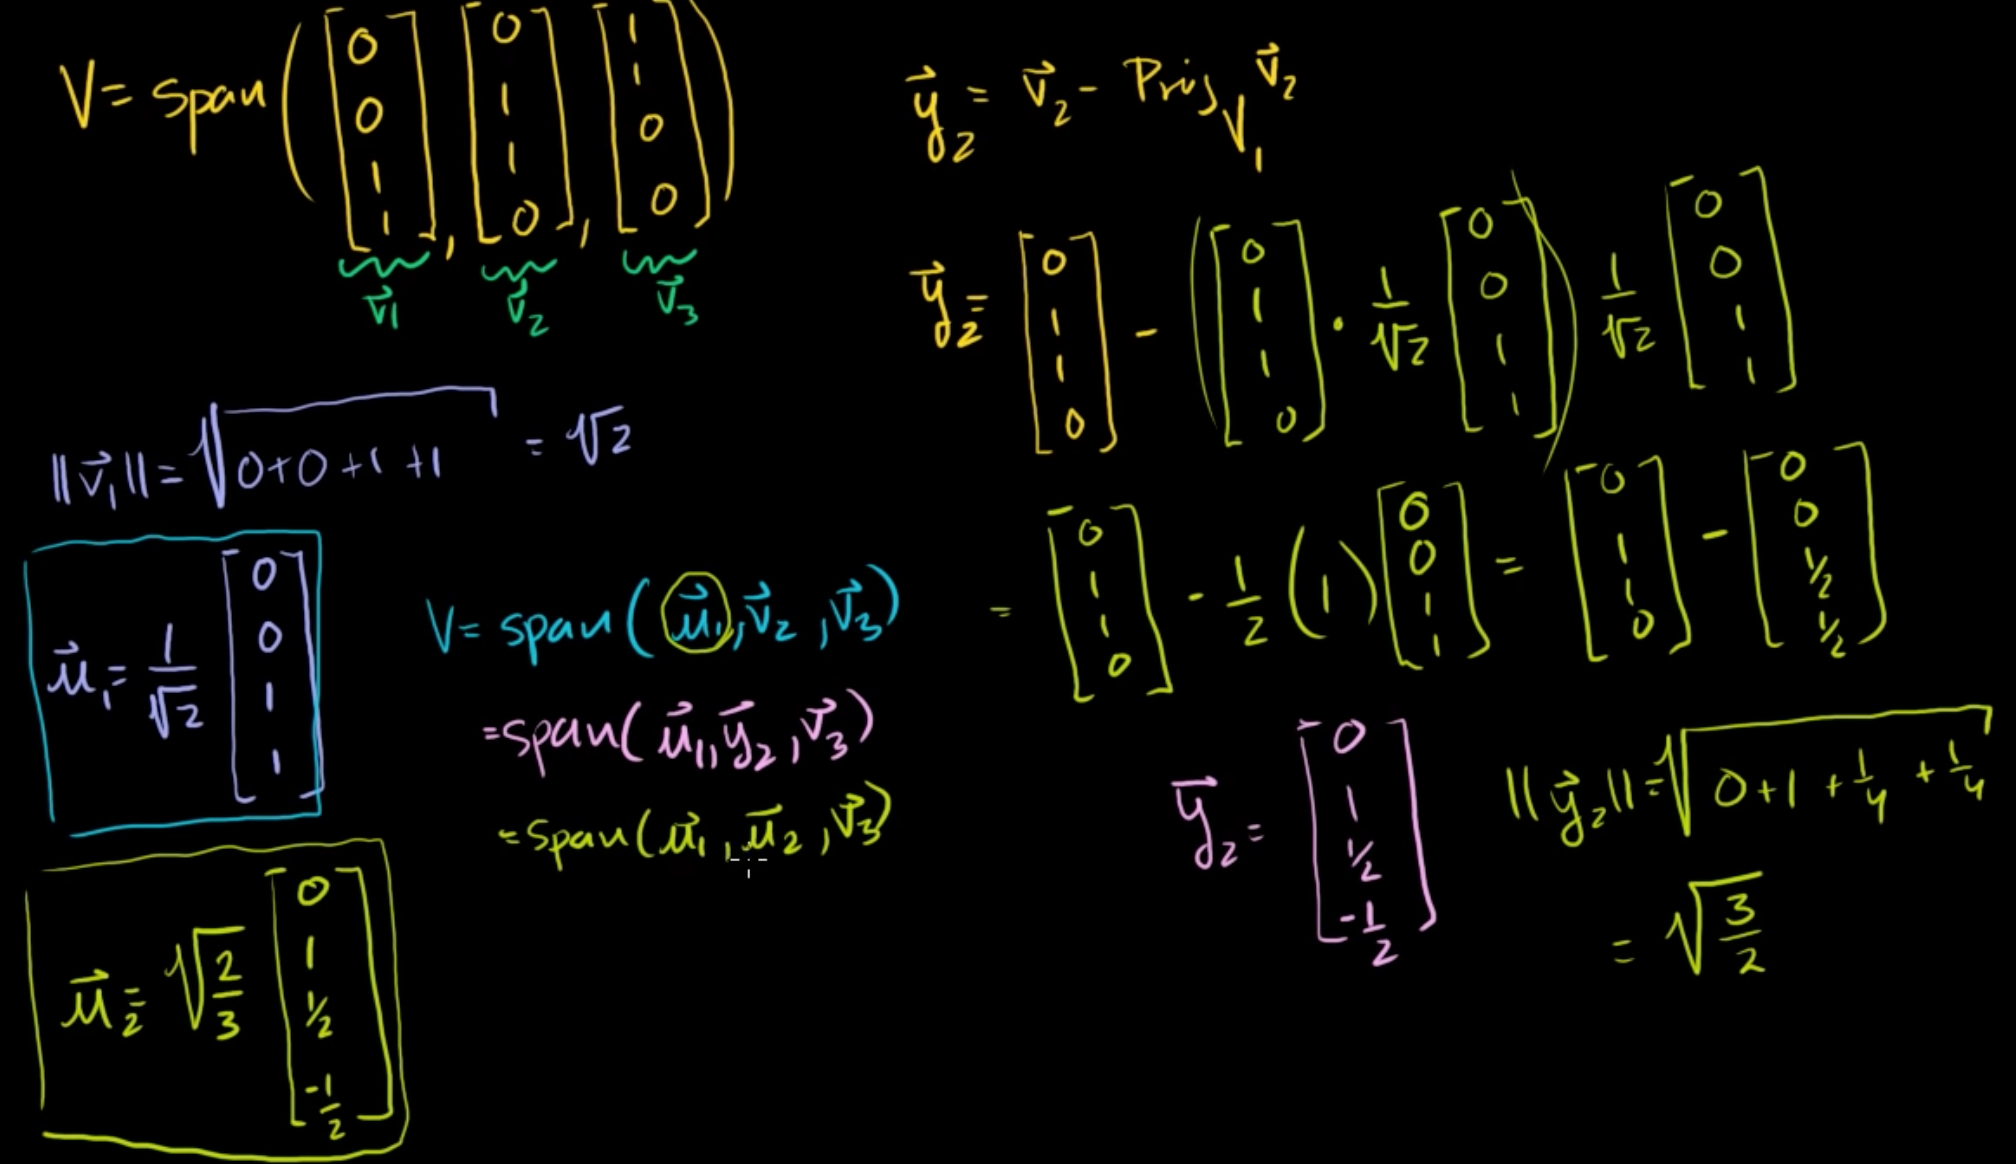 V = span([0 0 1 1], [0 1 1 0], [1 1 0 0])
v⃗1 v⃗2 v⃗3
||v⃗1|| = √(0+0+1+1) = √2
u⃗1 = 1/√2 [0 0 1 1]
V = span(u⃗1, v⃗2, v⃗3)
= span(u⃗1, y⃗2, v⃗3)
= span(u⃗1, u⃗2, v⃗3)
u⃗2 = √(2/3) [0 1 1/2 -1/2]
y⃗2 = v⃗2 - Proj V1 v⃗2
y⃗2 = [0 1 1 0] - ([0 1 1 0] · 1/√2 [0 0 1 1]) 1/√2 [0 0 1 1]
= [0 1 1 0] - 1/2 (1) [0 0 1 1] = [0 1 1 0] - [0 0 1/2 1/2]
y⃗2 = [0 1 1/2 -1/2]
||y⃗2|| = √(0+1+1/4+1/4)
= √(3/2)